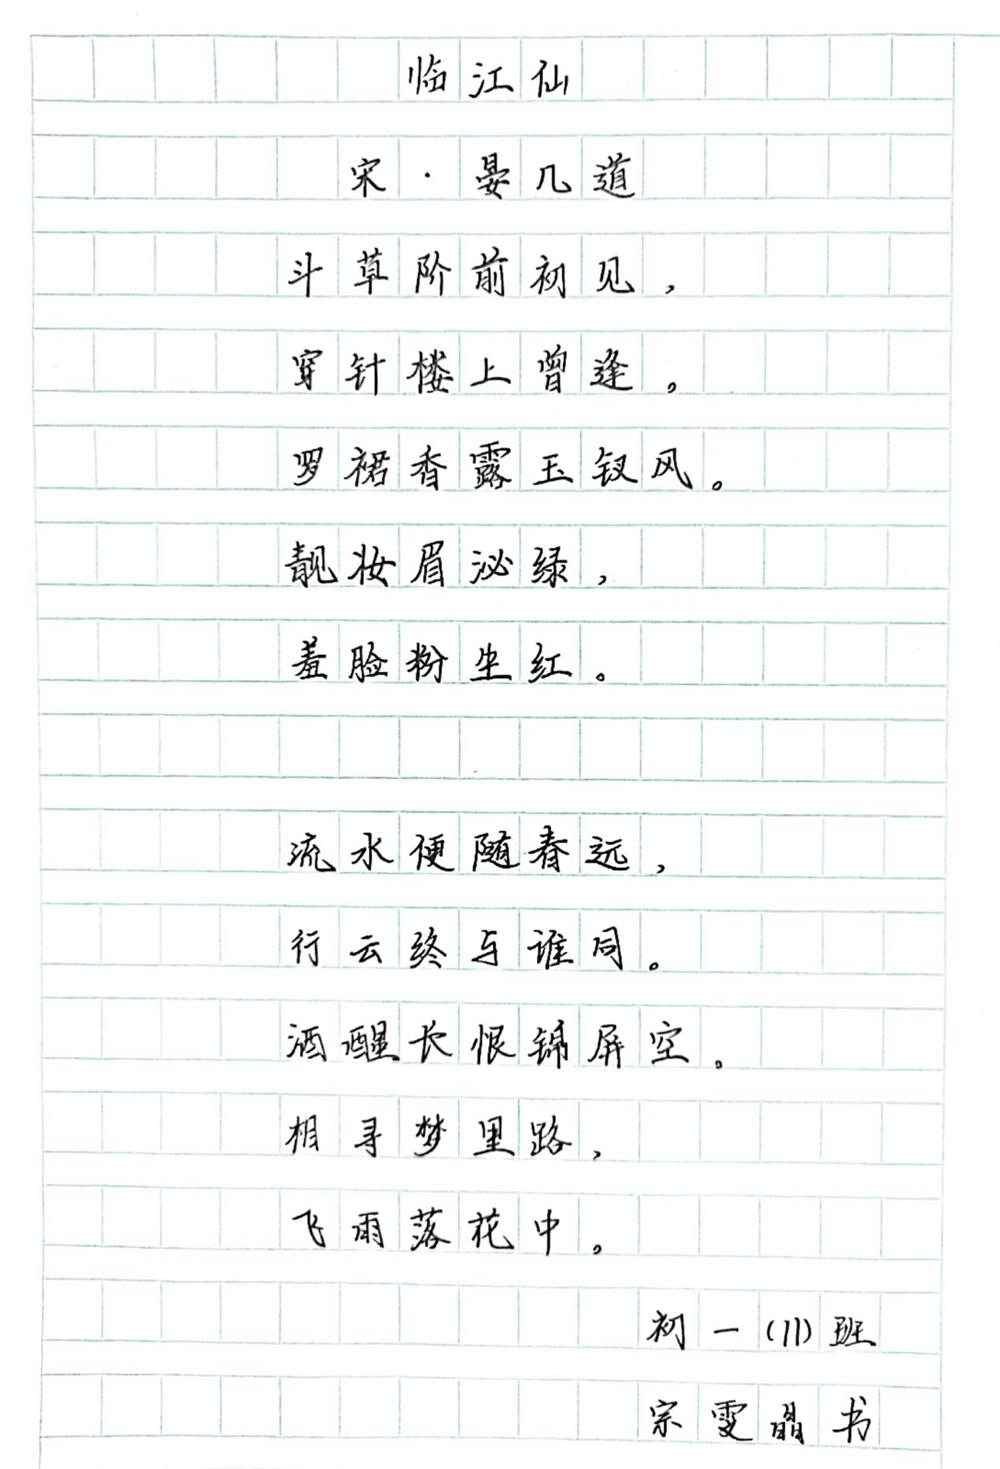 临江仙
宋·晏几道
斗草阶前初见，
穿针楼上曾逢。
罗裙香露玉钗风。
靓妆眉沁绿，
羞脸粉生红。
流水便随春远，
行云终与谁同。
酒醒长恨锦屏空。
相寻梦里路，
飞雨落花中。
初一(11)班
宗雯晶书